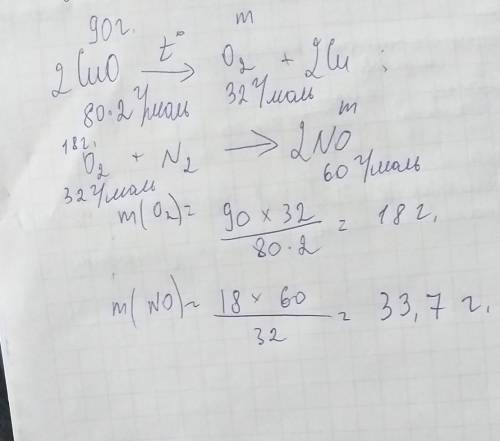 90г. m
2CuO t° → O₂ + 2Cu ;
80·2 г/моль 32 г/моль
18г. m
O₂ + N₂ → 2NO
32 г/моль 60 г/моль
m(O₂) = 90 × 32 / 80·2 = 18 г.
m(NO) = 18 × 60 / 32 = 33,7 г.